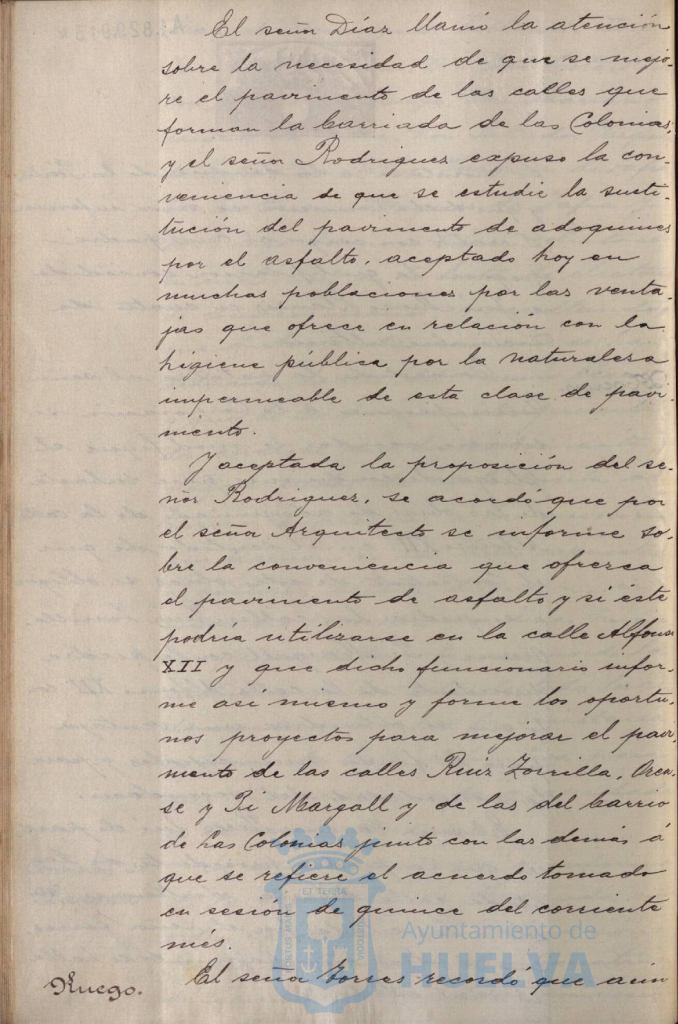 El señor Díaz llamó la atención
sobre la necesidad de que se mejo-
re el pavimento de las calles que
forman la barriada de las Colonias,
y el señor Rodriguez expuso la con-
veniencia de que se estudie la susti-
tución del pavimento de adoquines
por el asfalto, aceptado hoy en
muchas poblaciones por las venta-
jas que ofrece en relación con la
higiene pública por la naturaleza
impermeable de esta clase de pavi-
mento.
Y aceptada la proposición del se-
ñor Rodriguez, se acordó que por
el señor Arquitecto se informe so-
bre la conveniencia que ofrezca
el pavimento de asfalto y si éste
podría utilizarse en la calle Alfonso
XII y que dicho funcionario infor-
me asi mismo y forme los oportu-
nos proyectos para mejorar el pavi-
mento de las calles Ruiz Zorrilla, Oren-
se y Pi Margall y de las del barrio
de Las Colonias junto con las demás á
que se refiere el acuerdo tomado
en sesión de quince del corriente
més.
Ruego.
El señor Torres recordó que aun
Ayuntamiento de
HUELVA